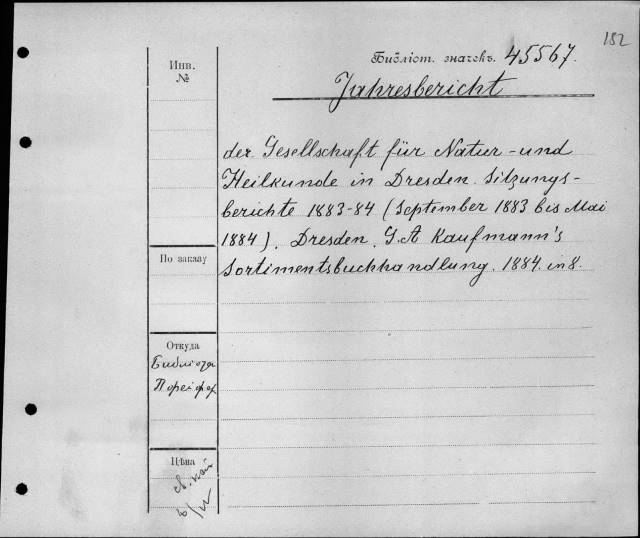 182
Инв.
№
Библіот. значекъ. 45567.
Jahresbericht
der Gesellschaft für Natur-und
Heilkunde in Dresden. Sitzungs-
berichte 1883-84 (September 1883 bis Mai
1884). Dresden. G.A Kaufmann's
Sortimentsbuchhandlung. 1884. in 8.
По заказу
Откуда
Цѣна